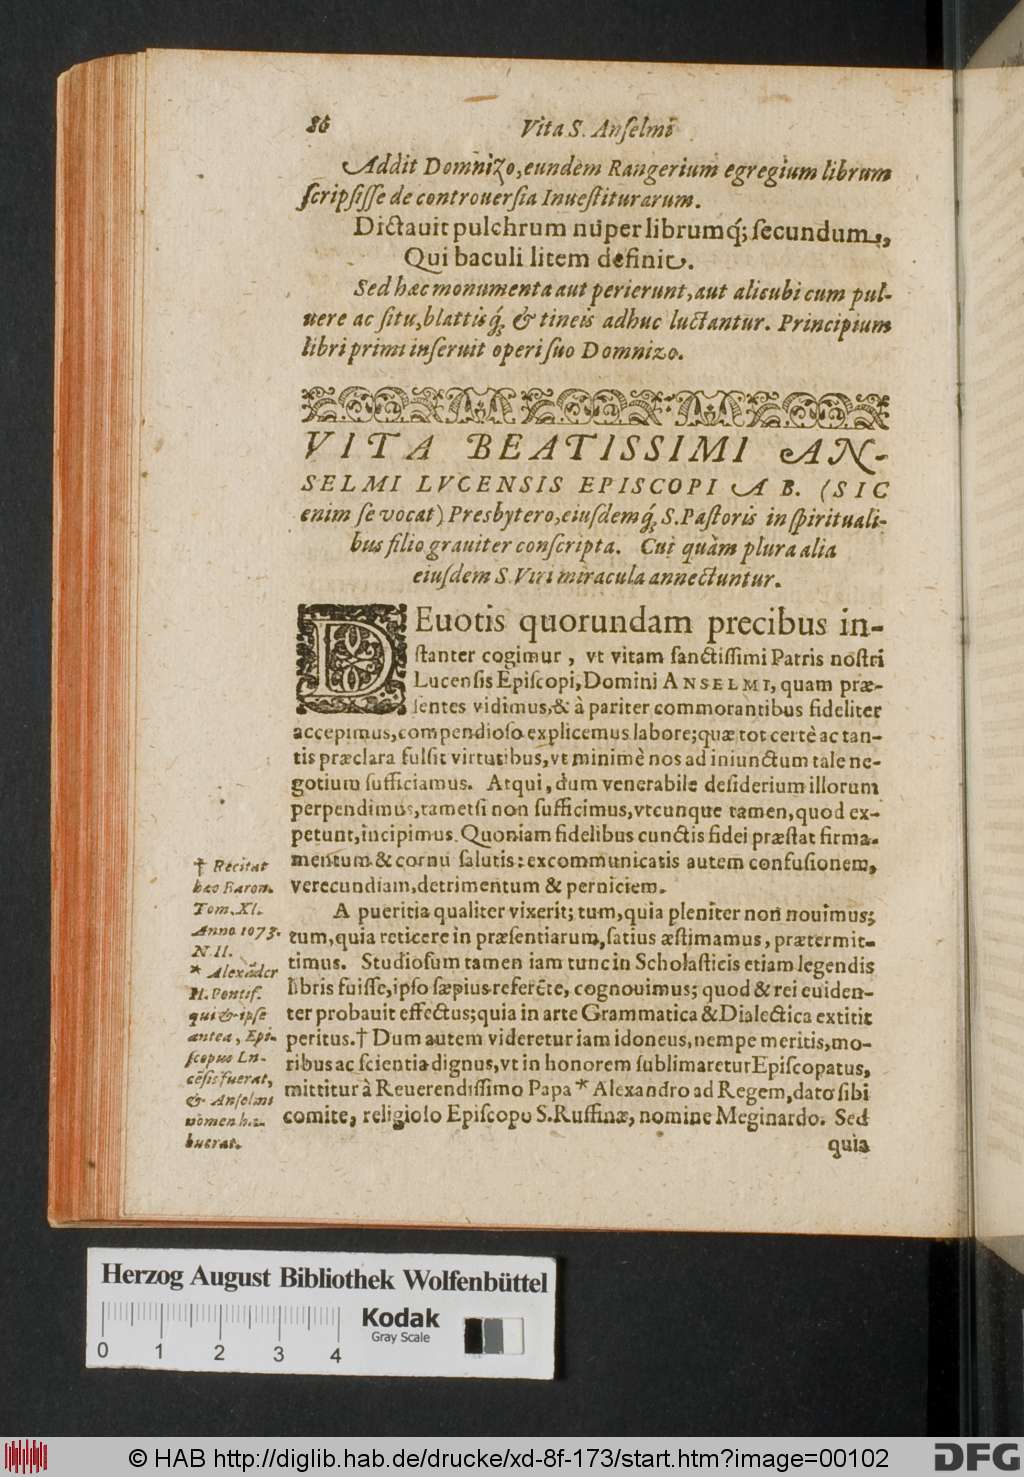 86
Vita S. Anſelmi
Addit Domnizo, eundèm Rangerium egregium librum
ſcripſiſſe de controuerſia Inueſtiturarum.
Dictauit pulchrum nuper librumq́; ſecundum,
Qui baculi litem definit.
Sed hæc monumenta aut perierunt, aut alicubi cum pul-
uere ac ſitu, blattisq́; & tineis adhuc luctantur. Principium
libri primi inſeruit operi ſuo Domnizo.
VITA BEATISSIMI AN-
SELMI LVCENSIS EPISCOPI A B. (SIC
enim ſe vocat) Presbytero, eiuſdemq́; S. Paſtoris in ſpirituali-
bus filio grauiter conſcripta. Cui quàm plura alia
eiuſdem S. Viri miracula annectuntur.
DEuotis quorundam precibus in-
ſtanter cogimur, vt vitam ſanctiſſimi Patris noſtri
Lucenſis Epiſcopi, Domini ANSELMI, quam præ-
ſentes vidimus, & à pariter commorantibus fideliter
accepimus, compendioſo explicemus labore; quæ tot certè ac tan-
tis præclara fulſit virtutibus, vt minimè nos ad iniunctum tale ne-
gotium ſufficiamus. Atqui, dum venerabile deſiderium illorum
perpendimus, tametſi non ſufficimus, vtcunque tamen, quod ex-
petunt, incipimus. Quoniam fidelibus cunctis fidei præſtat firma-
mentum & cornu ſalutis: excommunicatis autem confuſionem,
verecundiam, detrimentum & perniciem.
A pueritia qualiter vixerit; tum, quia pleniter non nouimus;
tum, quia reticere in præſentiarum, ſatius æſtimamus, prætermit-
timus. Studioſum tamen iam tunc in Scholaſticis etiam legendis
libris fuiſſe, ipſo ſæpius referẽte, cognouimus; quod & rei euiden-
ter probauit effectus; quia in arte Grammatica & Dialectica extitit
peritus. † Dum autem videretur iam idoneus, nempe meritis, mo-
ribus ac ſcientia dignus, vt in honorem ſublimaretur Epiſcopatus,
mittitur à Reuerendiſſimo Papa * Alexandro ad Regem, dato ſibi
comite, religioſo Epiſcopo S. Ruffinæ, nomine Meginardo. Sed
quia
† Recitat
hæc Baron.
Tom. XI.
Anno 1073.
N. II.
* Alexãder
II. Pontif.
qui & ipſe
antea, Epi-
ſcopus Lu-
cẽſis fuerat,
& Anſelmi
nomen ha-
buerat.
Herzog August Bibliothek Wolfenbüttel
Kodak
Gray Scale
0 1 2 3 4
© HAB http://diglib.hab.de/drucke/xd-8f-173/start.htm?image=00102
DFG